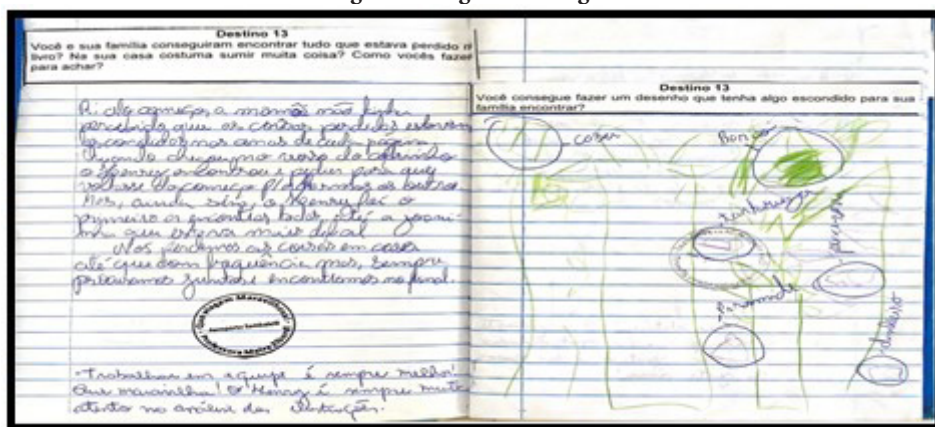 Destino 13
Você e sua família conseguiram encontrar tudo que estava perdido n
livro? Na sua casa costuma sumir muita coisa? Como vocês fazer
para achar?
R: começo, a mamãe não tinha
percebido que as coisas perdidas estavam
escondidas nas cenas de cada página
Quando chegou no verso da
o Henry encontrou e pediu para que
voltasse do começo p/ as outras
Mas, ainda sim, o Henry foi o
primeiro a encontrar todas, até a joani-
nha que estava mais difícil
Nós perdemos as coisas em casa
até que com frequência mas, sempre
procuramos juntos e encontramos no final.
Que viagem Maravilhosa!
Trabalhar em equipe é sempre melhor!
Que maravilha! O Henry é sempre muito
atento na análise das ilustrações.
Destino 13
Você consegue fazer um desenho que tenha algo escondido para sua
família encontrar?
tartaruga
piramide
dinheiro